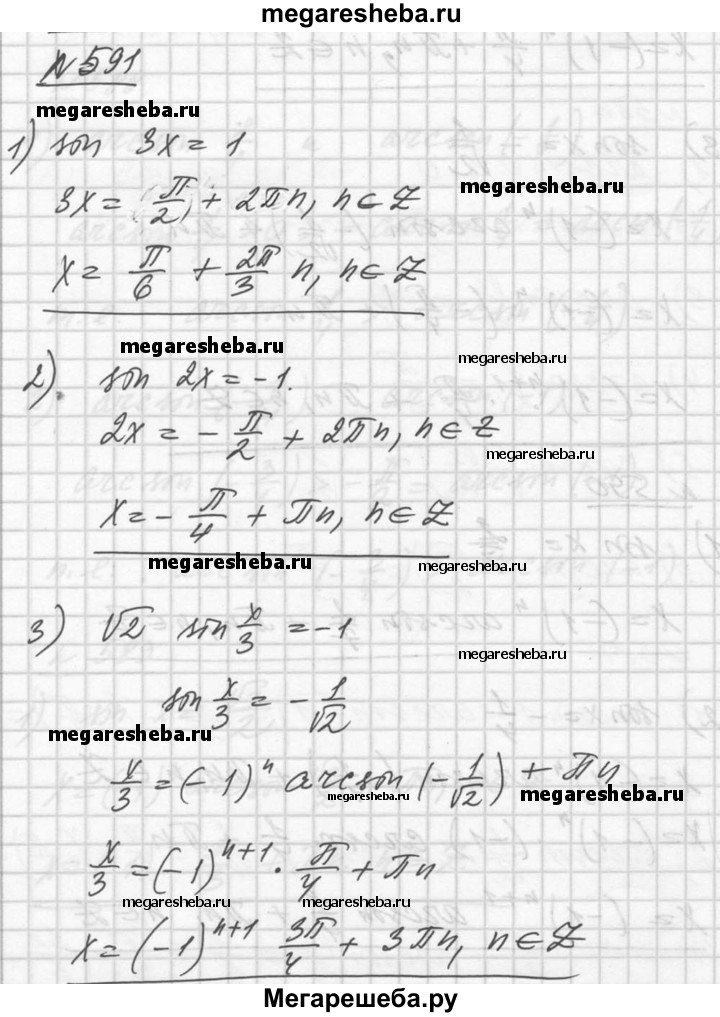 megaresheba.ru
№591
megaresheba.ru
1) sin 3x = 1
megaresheba.ru
3x = π/2 + 2πn, n ∈ Z
x = π/6 + 2π/3 n, n ∈ Z
megaresheba.ru
megaresheba.ru
2) sin 2x = -1.
2x = - π/2 + 2πn, n ∈ Z
megaresheba.ru
x = - π/4 + πn, n ∈ Z
megaresheba.ru
megaresheba.ru
3) √2 sin x/3 = -1
megaresheba.ru
sin x/3 = - 1/√2
megaresheba.ru
x/3 = (-1)^n arcsin (- 1/√2) + πn
megaresheba.ru
megaresheba.ru
x/3 = (-1)^(n+1) · π/4 + πn
megaresheba.ru
megaresheba.ru
x = (-1)^(n+1) 3π/4 + 3πn, n ∈ Z
Мегарешеба.ру